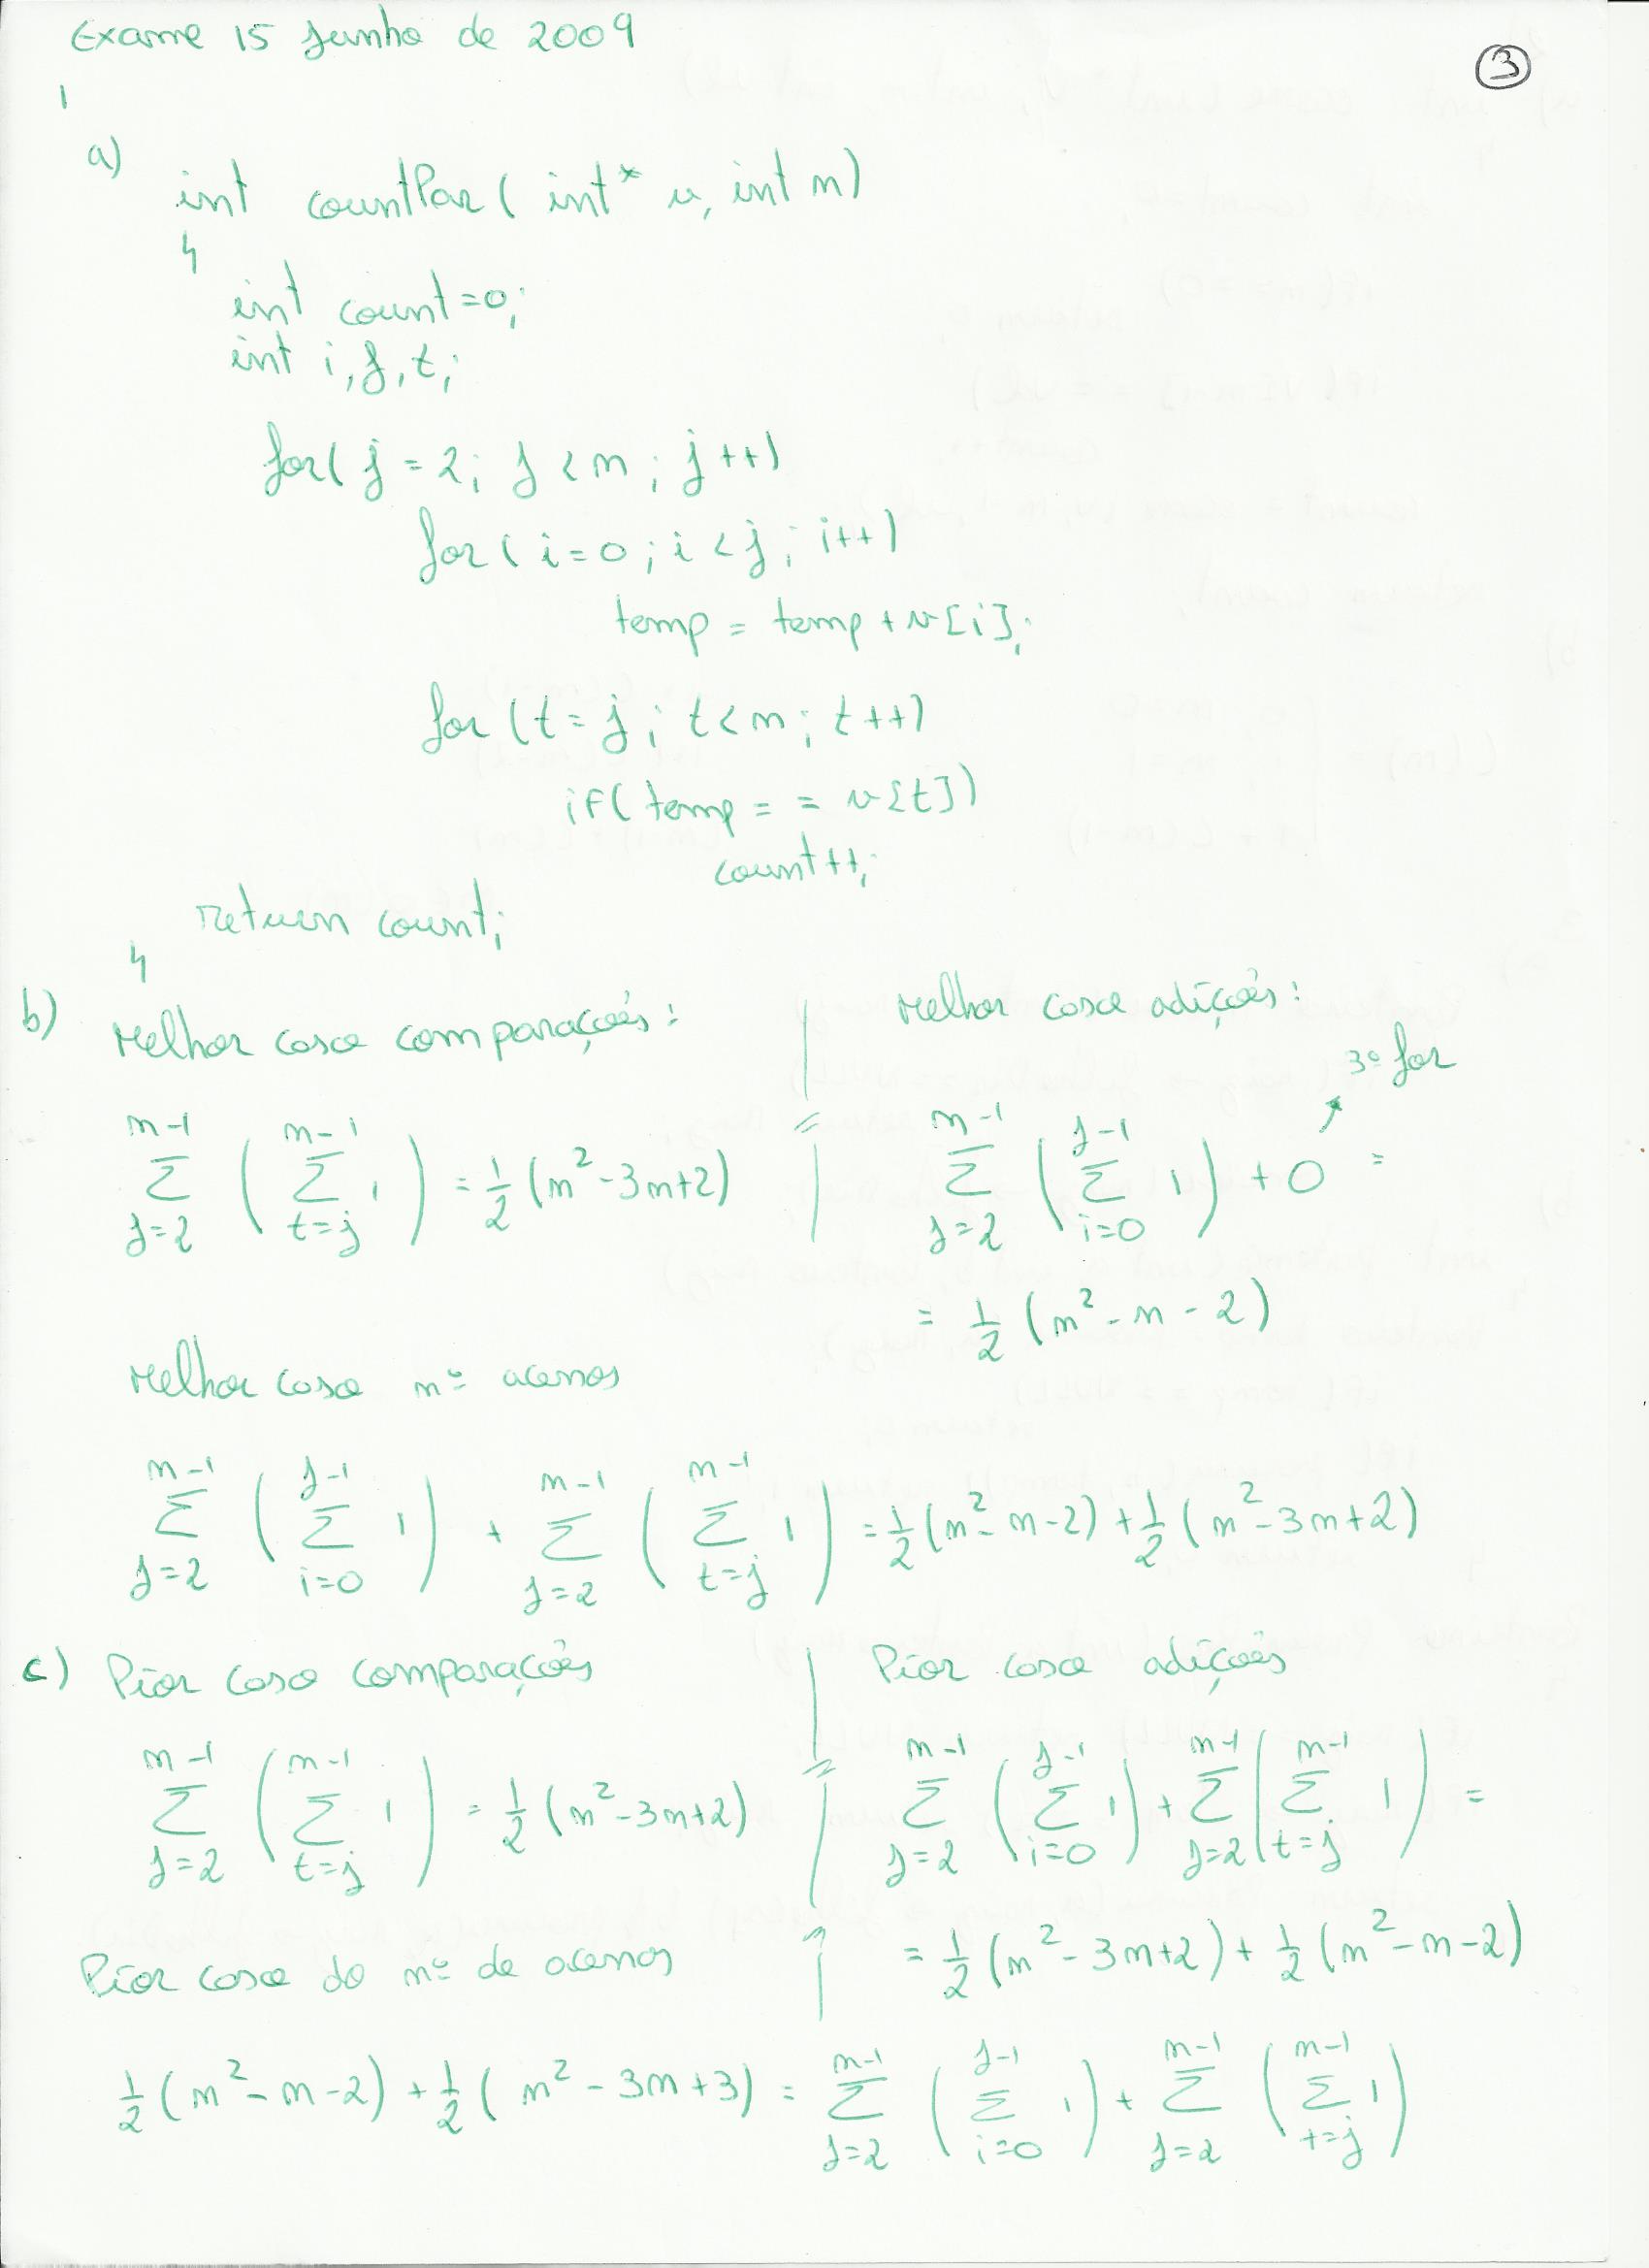 Exame 15 Junho de 2009
③
1
a)
int countPar ( int* v, int n)
{
int count=0;
int i, j, t;
for( j = 2; j < n ; j++)
for( i=0 ; i < j ; i++)
temp = temp + v[i];
for (t= j ; t < n ; t++)
if( temp = = v[t])
count++;
return count;
}
b) Melhor caso comparações:
∑_{j=2}^{n-1} ( ∑_{t=j}^{n-1} 1 ) = 1/2 (n² - 3n+2)
Melhor caso adições:
3º for
∑_{j=2}^{n-1} ( ∑_{i=0}^{j-1} 1 ) + 0 =
= 1/2 (n² - n - 2)
Melhor caso nº acessos
∑_{j=2}^{n-1} ( ∑_{i=0}^{j-1} 1 ) + ∑_{j=2}^{n-1} ( ∑_{t=j}^{n-1} 1 ) = 1/2 (n² - n - 2) + 1/2 ( n² - 3n+2)
c) Pior caso comparações
∑_{j=2}^{n-1} ( ∑_{t=j}^{n-1} 1 ) = 1/2 (n² - 3n+2)
Pior caso adições
∑_{j=2}^{n-1} ( ∑_{i=0}^{j-1} 1 ) + ∑_{j=2}^{n-1} ( ∑_{t=j}^{n-1} 1 ) =
= 1/2 (n² - 3n+2) + 1/2 (n² - n - 2)
Pior caso do nº de acessos
1/2 (n² - n - 2) + 1/2 ( n² - 3n + 3) = ∑_{j=2}^{n-1} ( ∑_{i=0}^{j-1} 1 ) + ∑_{j=2}^{n-1} ( ∑_{t=j}^{n-1} 1 )